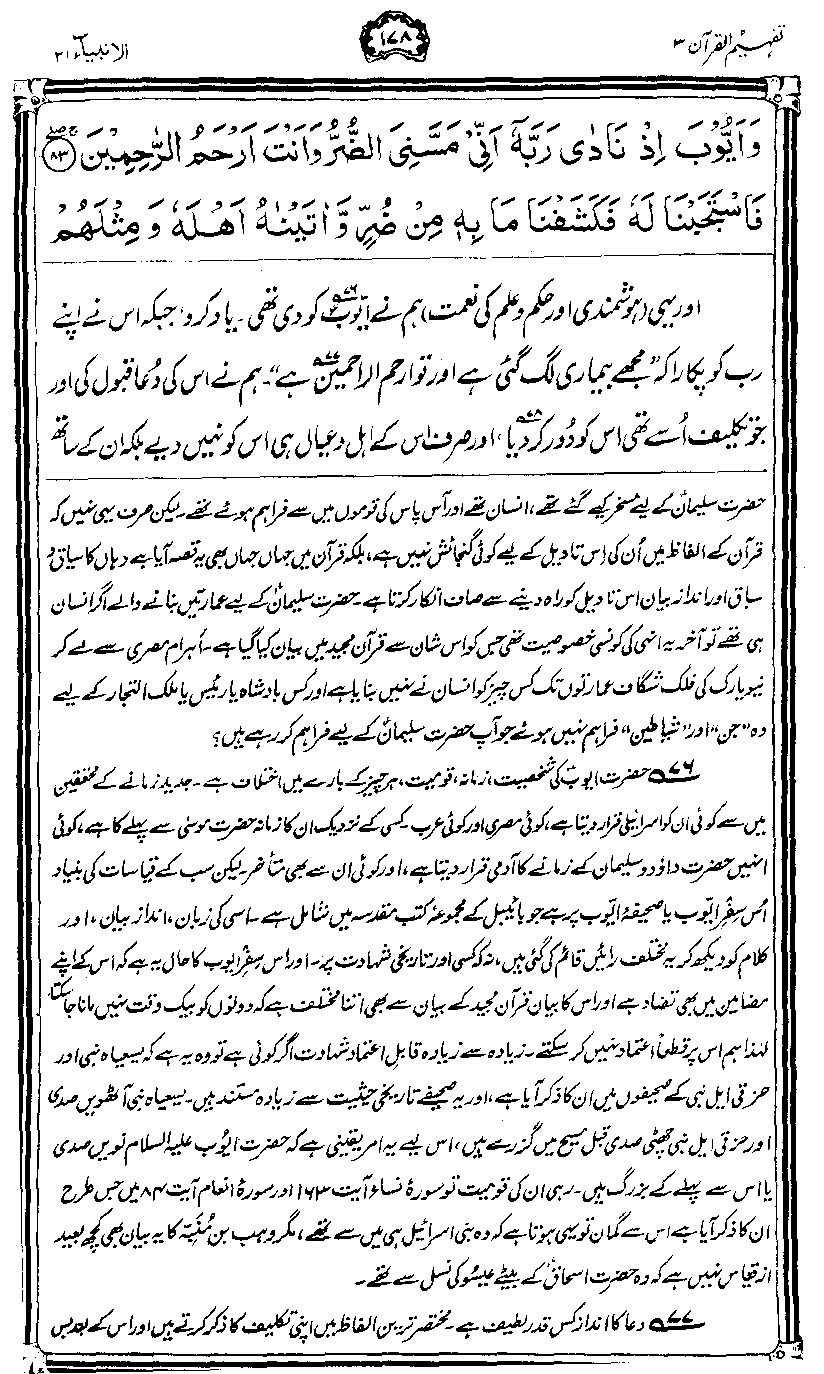 تفہیم القرآن ۳
۱۷۸
الانبیاء ۲۱
وَاَيُّوْبَ اِذْ نَادٰى رَبَّهٗٓ اَنِّىْ مَسَّنِىَ الضُّرُّ وَاَنْتَ اَرْحَمُ الرّٰحِمِيْنَ ۸۳
فَاسْتَجَبْنَا لَهٗ فَكَشَفْنَا مَا بِهٖ مِنْ ضُرٍّ وَّاٰتَيْنٰهُ اَهْلَهٗ وَمِثْلَهُمْ
اور یہی (ہوشمندی اور حکم و علم کی نعمت) ہم نے ایّوبؑ ۷۶ کو دی تھی۔ یاد کرو، جبکہ اس نے اپنے
رب کو پکارا کہ ”مجھے بیماری لگ گئی ہے اور تو ارحم الراحمین ۷۷ ہے“۔ ہم نے اس کی دُعا قبول کی اور
جو تکلیف اُسے تھی اس کو دُور کر دیا ۷۸، اور صرف اس کے اہل و عیال ہی اس کو نہیں دیے بلکہ ان کے ساتھ
حضرت سلیمانؑ کے لیے مسخر کیے گئے تھے، انسان تھے اور آس پاس کی قوموں میں سے فراہم ہوئے تھے۔ لیکن صرف یہی نہیں کہ
قرآن کے الفاظ میں اُن کی اِس تاویل کے لیے کوئی گنجائش نہیں ہے، بلکہ قرآن میں جہاں جہاں بھی یہ قصہ آیا ہے وہاں کا سیاق و
سباق اور انداز بیان اس تاویل کو راہ دینے سے صاف انکار کرتا ہے۔ حضرت سلیمانؑ کے لیے عمارتیں بنانے والے اگر انسان
ہی تھے تو آخر یہ انہی کی کونسی خصوصیت تھی جس کو اس شان سے قرآن مجید میں بیان کیا گیا ہے۔ اَہرام مصری سے لے کر
نیویارک کی فلک شگاف عمارتوں تک کس چیز کو انسان نے نہیں بنایا ہے اور کس بادشاہ یا رئیس یا ملک التجار کے لیے
وہ ”جن“ اور ”شیاطین“ فراہم نہیں ہوئے جو آپ حضرت سلیمانؑ کے لیے فراہم کر رہے ہیں؟
۷۶ حضرت ایوبؑ کی شخصیت، زمانہ، قومیت، ہر چیز کے بارے میں اختلاف ہے۔ جدید زمانے کے محققین
میں سے کوئی ان کو اسرائیلی قرار دیتا ہے، کوئی مصری اور کوئی عرب۔ کسی کے نزدیک ان کا زمانہ حضرت موسیٰ سے پہلے کا ہے، کوئی
انہیں حضرت داؤد و سلیمان کے زمانے کا آدمی قرار دیتا ہے، اور کوئی ان سے بھی متأخر۔ لیکن سب کے قیاسات کی بنیاد
اُس سِفرِ ایّوب یا صحیفۂ ایّوب پر ہے جو بائیبل کے مجموعۂ کتب مقدسہ میں شامل ہے۔ اسی کی زبان، انداز بیان، اور
کلام کو دیکھ کر یہ مختلف رائیں قائم کی گئی ہیں، نہ کہ کسی اور تاریخی شہادت پر۔ اور اس سِفرِ ایوب کا حال یہ ہے کہ اس کے اپنے
مضامین میں بھی تضاد ہے اور اس کا بیان قرآن مجید کے بیان سے بھی اتنا مختلف ہے کہ دونوں کو بیک وقت نہیں مانا جا سکتا،
لہٰذا ہم اس پر قطعاً اعتماد نہیں کر سکتے۔ زیادہ سے زیادہ قابلِ اعتماد شہادت اگر کوئی ہے تو وہ یہ ہے کہ یسعیاہ نبی اور
حزقی ایل نبی کے صحیفوں میں ان کا ذکر آیا ہے، اور یہ صحیفے تاریخی حیثیت سے زیادہ مستند ہیں۔ یسعیاہ نبی آٹھویں صدی
اور حزقی ایل نبی چھٹی صدی قبل مسیح میں گزرے ہیں، اس لیے یہ امر یقینی ہے کہ حضرت ایوب علیہ السلام نویں صدی
یا اس سے پہلے کے بزرگ ہیں۔ رہی ان کی قومیت تو سورۂ نساء آیت ۱۶۳ اور سورۂ انعام آیت ۸۴ میں جس طرح
ان کا ذکر آیا ہے اس سے گمان تو یہی ہوتا ہے کہ وہ بنی اسرائیل ہی میں سے تھے، مگر وہب بن مُنَبِّہ کا یہ بیان بھی کچھ بعید
از قیاس نہیں ہے کہ وہ حضرت اسحاقؑ کے بیٹے عیسُو کی نسل سے تھے۔
۷۷ دعا کا انداز کس قدر لطیف ہے۔ مختصر ترین الفاظ میں اپنی تکلیف کا ذکر کرتے ہیں اور اس کے بعد بس